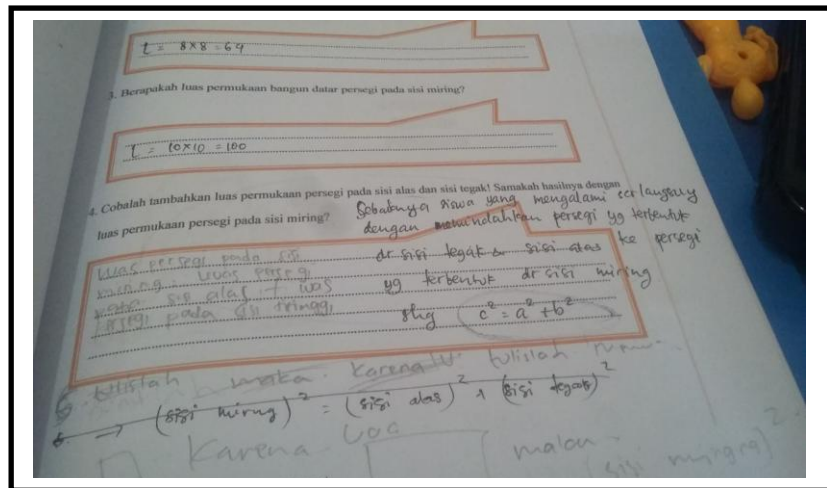 L = 8 x 8 = 64
3. Berapakah luas permukaan bangun datar persegi pada sisi miring?
L = 10 x 10 = 100
4. Cobalah tambahkan luas permukaan persegi pada sisi alas dan sisi tegak! Samakah hasilnya dengan
luas permukaan persegi pada sisi miring?
Sebaiknya siswa yang mengalami scr langsung
dengan memindahkan persegi yg terbentuk
dr sisi tegak & sisi atas ke persegi
yg terbentuk dr sisi miring
shg c² = a² + b²
Luas persegi pada sisi
miring = luas persegi
pada sisi alas + luas
persegi pada sisi tinggi
tulislah maka karena itu tulislah
→ (sisi miring)² = (sisi alas)² + (sisi tegak)²
Karena maka
(sisi miring)²